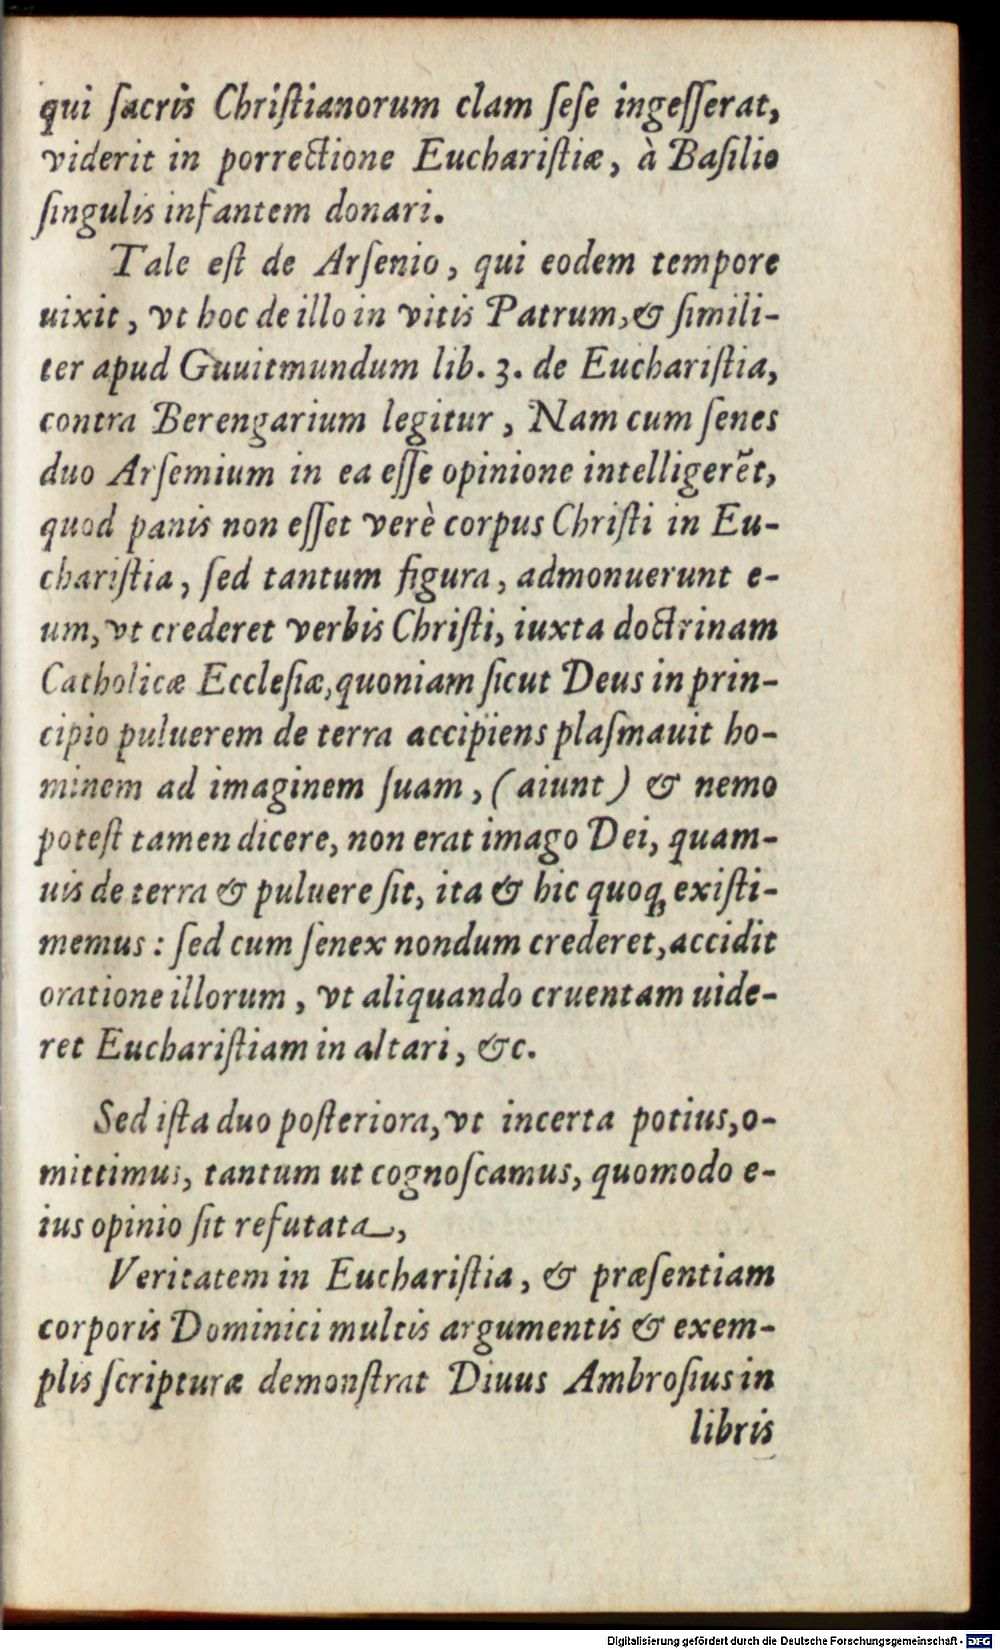 qui ſacris Chriſtianorum clam ſeſe ingeſſerat,
viderit in porrectione Euchariſtiæ, à Baſilio
ſingulis infantem donari.
Tale eſt de Arſenio, qui eodem tempore
uixit, vt hoc de illo in vitis Patrum, & ſimili-
ter apud Guuitmundum lib. 3. de Euchariſtia,
contra Berengarium legitur, Nam cum ſenes
duo Arſemium in ea eſſe opinione intelligerẽt,
quod panis non eſſet verè corpus Chriſti in Eu-
chariſtia, ſed tantum figura, admonuerunt e-
um, vt crederet verbis Chriſti, iuxta doctrinam
Catholicæ Eccleſiæ, quoniam ſicut Deus in prin-
cipio puluerem de terra accipiens plaſmauit ho-
minem ad imaginem ſuam, (aiunt) & nemo
poteſt tamen dicere, non erat imago Dei, quam-
uis de terra & puluere ſit, ita & hic quoq; exiſti-
memus: ſed cum ſenex nondum crederet, accidit
oratione illorum, vt aliquando cruentam uide-
ret Euchariſtiam in altari, &c.
Sed iſta duo poſteriora, vt incerta potius, o-
mittimus, tantum ut cognoſcamus, quomodo e-
ius opinio ſit refutata,
Veritatem in Euchariſtia, & præſentiam
corporis Dominici multis argumentis & exem-
plis ſcripturæ demonſtrat Diuus Ambroſius in
libris
Digitalisierung gefördert durch die Deutsche Forschungsgemeinschaft - DFG